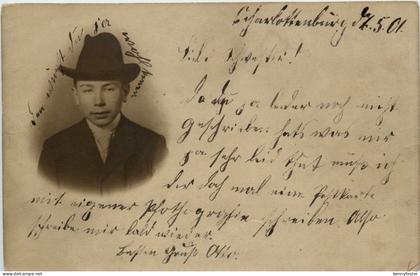 Charlottenburg d. 4.5.01.
Liebe Schwester!
Da du ja leider noch nicht
geschrieben hats was mir
ja sehr leid thut muß ich
dir doch mal eine Postkarte
mit eigener Photografie schreiben Also
schreibe mir bald wieder.
Besten Gruß Otto.
kennyfoster